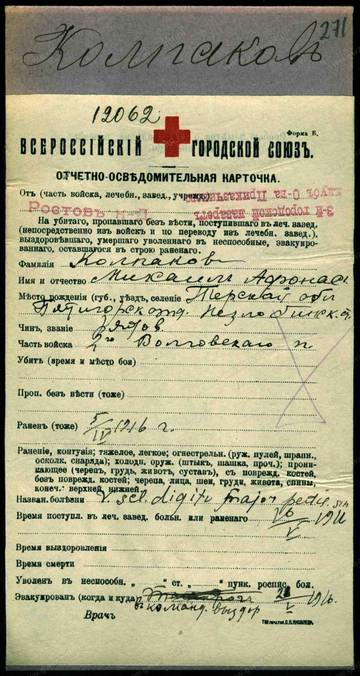 271
Колпаковъ
12062
Форма Б.
ВСЕРОССІЙСКІЙ ГОРОДСКОЙ СОЮЗЪ.
ОТЧЕТНО-ОСВѢДОМИТЕЛЬНАЯ КАРТОЧКА.
Отъ (часть войска, лечебн., завед., учрежд.)
3-й городской лазаретъ
Клубъ О-ва Приказчик
Ростовъ н/Д
На убитаго, пропавшаго безъ вѣсти, поступившаго въ леч. завед.
(непосредственно изъ войскъ и по переводу изъ лечебн. завед.),
выздоровѣвшаго, умершаго, уволеннаго въ неспособные, эвакуиро-
ваннаго, оставшагося въ строю раненаго.
Фамилія Колпаков
Имя и отчество Михаилъ Афонас
Мѣсто рожденія (губ., уѣздъ, селеніе) Терской обл
Чинъ, званіе рядов
Часть войска 2го Волговскаго п.
Убитъ (время и мѣсто боя)
Проп. безъ вѣсти (тоже)
Раненъ (тоже) 5/IV 1916 г.
Раненіе, контузія; тяжелое, легкое; огнестрѣльн. (руж. пулей, шрапн.,
осколк. снаряда); холодн. оруж. (штык., шашка, проч.); прони-
кающее (черепъ, грудь, животъ, суставъ), съ поврежд. костей,
безъ поврежд. костей; черепа, лица, шеи, груди, живота, спины,
конеч.: верхней, нижней.
Назван. болѣзни V. scl. digiti major pedis sin
Время поступл. въ леч. завед. больн. или раненаго 191
Время выздоровленія
Время смерти
Уволенъ въ неспособн. „ „ ст. „ „ пунк. роспис. бол.
Эвакуированъ (когда и куда) 191
в команд. выздор
Врачъ